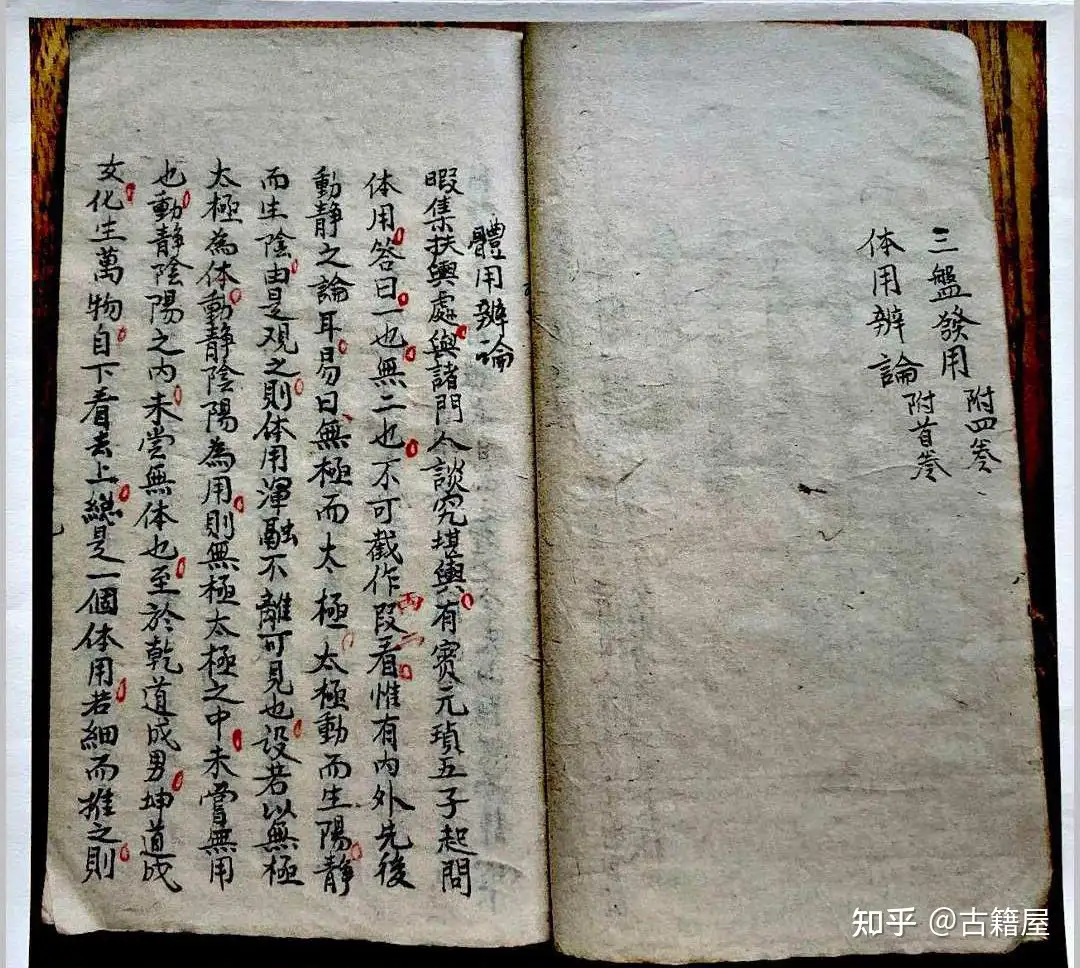 三盤發用附四卷
体用辨論附首卷
體用辨論
暇集扶輿處與諸門人談究堪輿有賓元瑣五子起問
体用答曰一也無二也不可截作兩段看惟有内外先後
動静之論耳易曰無極而太極太極動而生陽静
而生陰由是观之則体用渾融不離可見也设若以無極
太極為体動静陰陽為用則無極太極之中未嘗無用
也動静陰陽之内未嘗無体也至於乾道成男坤道成
女化生萬物自下看去上總是一個体用若細而推之則
知乎 @古籍屋